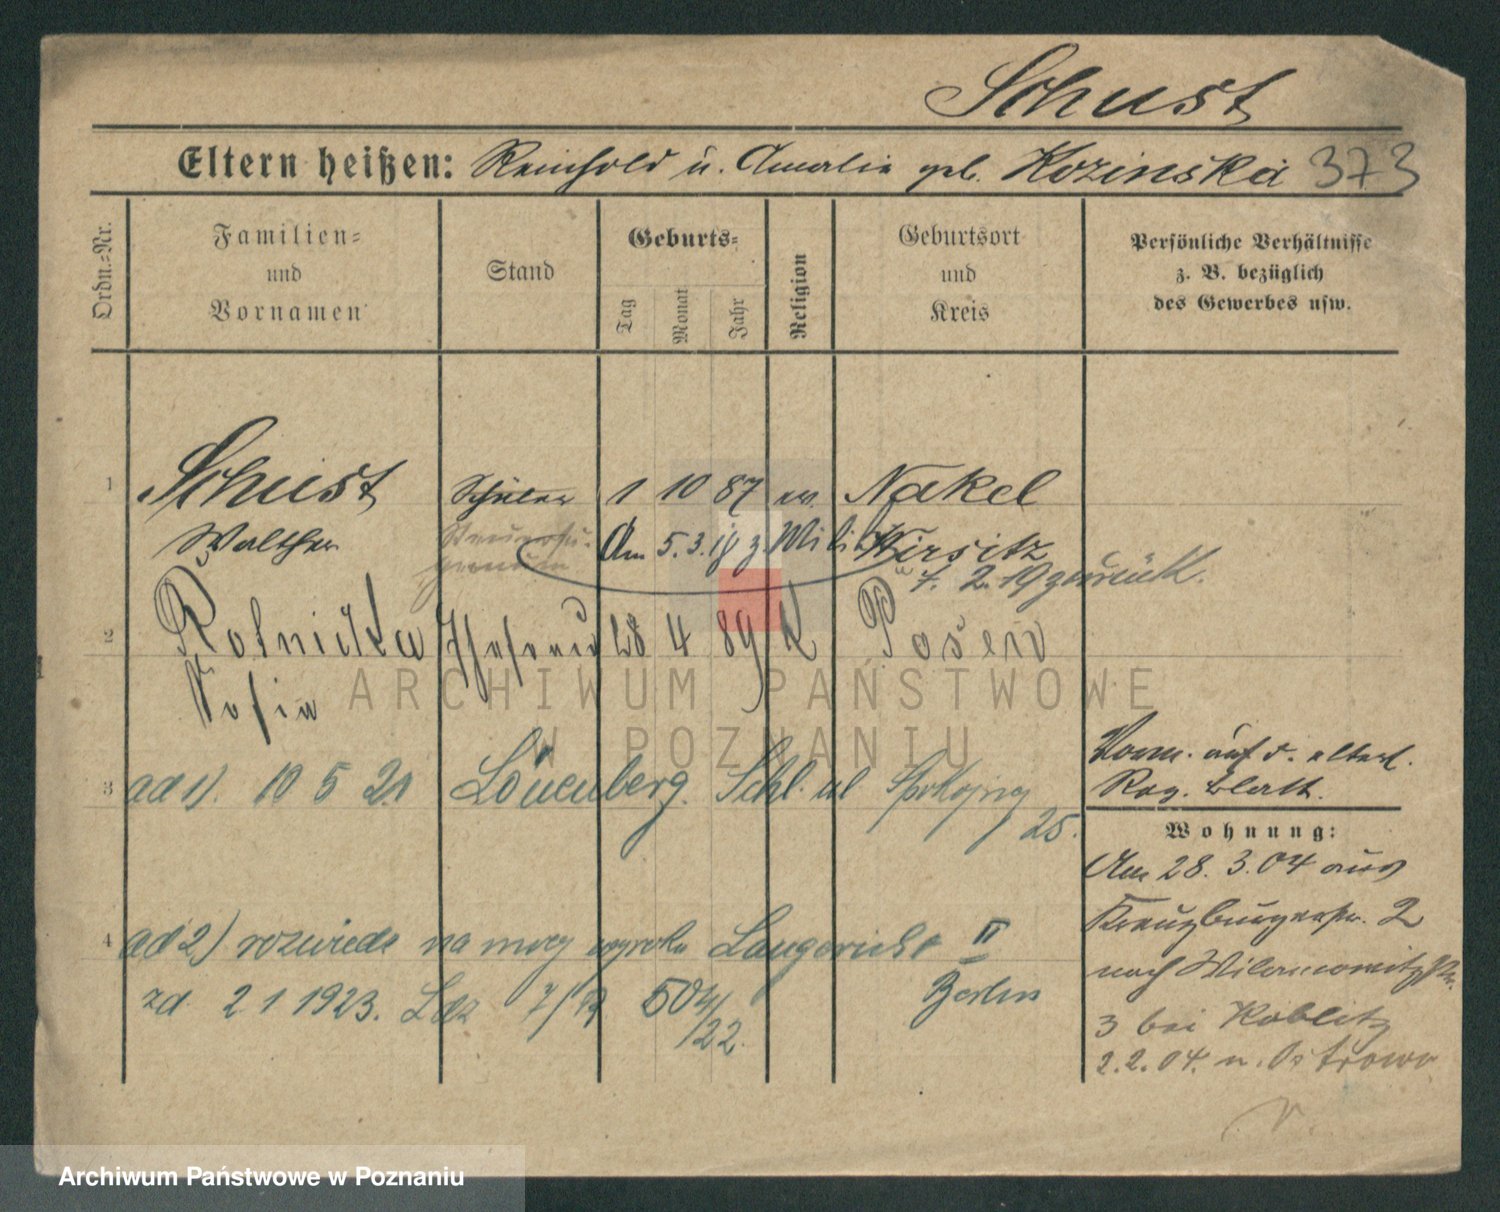 Schust
Eltern heißen: Reinhold u. Amalie geb. Kozinska 373
Ordn.-Nr.
Familien-
und
Vornamen
Stand
Geburts-
Tag
Monat
Jahr
Religion
Geburtsort
und
Kreis
Persönliche Verhältnisse
z. B. bezüglich
des Gewerbes usw.
1 Schust Schüler 1 10 87 ev. Nakel
Walther Am 5.3.18 z. Wirsitz
7. 2. 19 zurück.
2 Rotnicka Ehefrau 28 4 89 k Posen
Sofia
Vorm. auf d. elterl.
Reg. blatt.
3 ad 1). 10 5 21 Löwenberg. Schl. ul Spokojną
25.
Wohnung:
Am 28. 3. 04 aus
Kreuzburgerstr. 2
nach Wilamowitzstr.
3 bei Koblitz
2.2.04. n. Ostrowo
4 ad 2) rozwiedz na mocy wyroku Langericht II
Berlin
zd 2 1 1923. Ldz 504/
/22.
ARCHIWUM PAŃSTWOWE
W POZNANIU
Archiwum Państwowe w Poznaniu